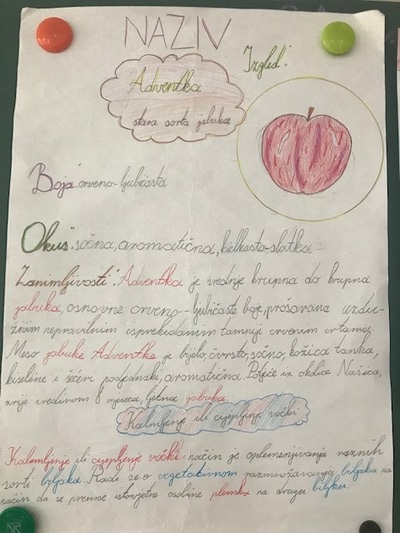 NAZIV
Izgled:
Adventka
stara sorta jabuka
Boja: crveno-ljubičasta
Okus: sočna, aromatična, kiselkasto-slatka
Zanimljivosti: Adventka je srednje krupna do krupna
jabuka, osnovne crveno-ljubičaste boje, prošarana uzdu-
žnim nepravilnim isprekidanim tamnije crvenim crtama.
Meso jabuke Adventke je bijelo, čvrsto, sočno, kožica tanka,
kiseline i šećeri podjednaki, aromatična. Potječe iz okolice Našica,
zrije sredinom mjeseca, ljetna jabuka.
Kalemljenje ili cijepljenje voćki
Kalemljenje ili cijepljenje voćki način je oplemenjivanja raznih
sorti biljaka. Radi se o vegetativnom razmnožavanju biljaka na
način da se prenose istovjetne osobine plemke na drugu biljku.